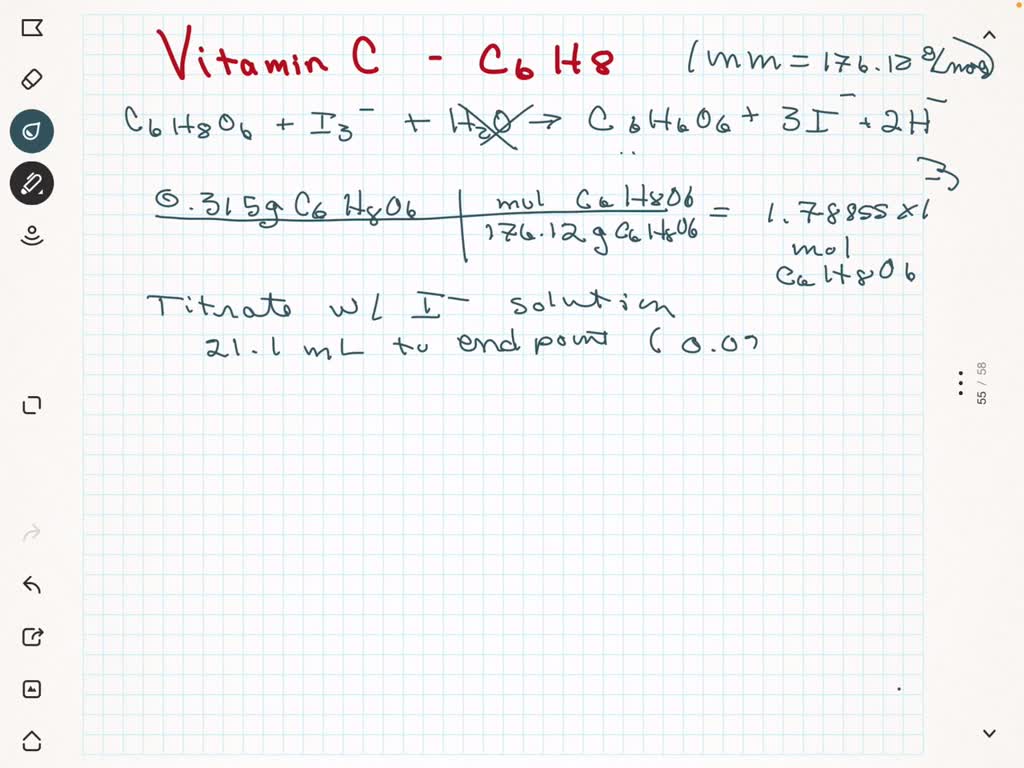 Vitamin C - C6H8 (mm = 176.12 g/mol)
C6H8O6 + I3⁻ + H2O → C6H6O6 + 3I⁻ + 2H⁻
0.315g C6H8O6 | mol C6H8O6 = 1.78855 x1 -3
176.12 g C6H8O6 mol
C6H8O6
Titrate w/ I⁻ solution
21.1 mL to end point (0.0
55 / 58